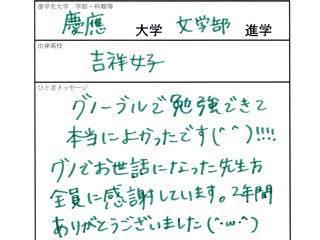 進学先大学 学部・科類等
慶應 大学 文学部 進学
出身高校
吉祥女子
ひと言メッセージ
グノーブルで勉強できて
本当によかったです(^^)!!!!
グノでお世話になった先生方
全員に感謝しています。2年間
ありがとうございました(^・ω・^)